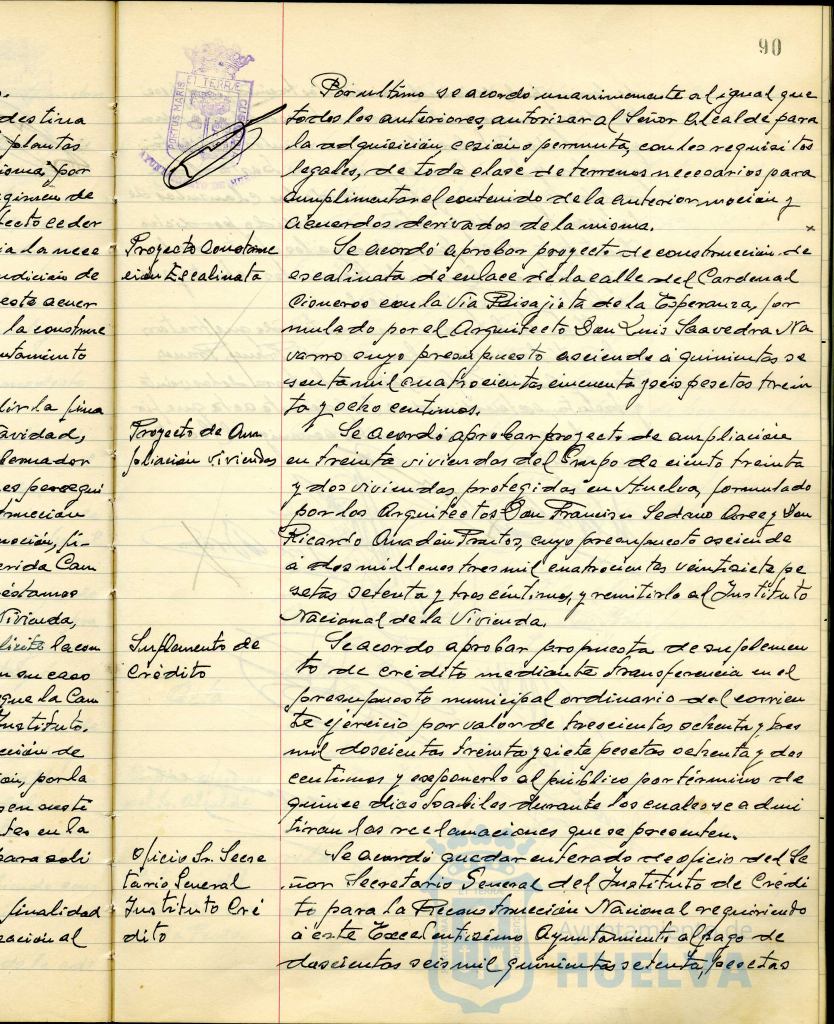 90
Por ultimo se acordó unanimemente al igual que
todos los anteriores, autorizar al Señor Alcalde para
la adquisición, cesión o permuta, con los requisitos
legales, de toda clase de terrenos necesarios para
cumplimentar el contenido de la anterior moción y
acuerdos derivados de la misma.
Proyecto construc
ción Escalinata
Se acordó aprobar proyecto de construcción de
escalinata de enlace de la calle del Cardenal
Cisneros con la Via Paisajista de la Esperanza, for
mulado por el Arquitecto Don Luis Saavedra Na
varro cuyo presupuesto asciende á quinientas se
senta mil cuatrocientas cincuenta y seis pesetas trein
ta y ocho centimos.
Proyecto de Am
pliación viviendas
Se acordó aprobar proyecto de ampliación
en treinta viviendas del Grupo de ciento treinta
y dos viviendas protegidas en Huelva, formulado
por los Arquitectos Don Francisco Sedano Arce y Don
Ricardo Anadón Frutos, cuyo presupuesto asciende
á dos millones tres mil cuatrocientas veintisiete pe
setas setenta y tres céntimos, y remitirlo al Instituto
Nacional de la Vivienda.
Suplemento de
Crédito
Se acordo aprobar propuesta de suplemen
to de crédito mediante transferencia en el
presupuesto municipal ordinario del corrien
te ejercicio por valor de trescientas ochenta y tres
mil doscientas treinta y siete pesetas ochenta y dos
centimos y exponerlo al público por término de
quince dias habiles durante los cuales se admi
tiran las reclamaciones que se presenten.
Oficio Sr. Secre
tario General
Instituto Cré
dito
Se acordó quedar enterado de oficio del Se
ñor Secretario General del Instituto de Crédi
to para la Reconstrucción Nacional requiriendo
á este Excelentísimo Ayuntamiento al pago de
doscientas seis mil quinientas setenta, pesetas
Ayuntamiento de
HUELVA
destina
plantas
por
gimen de
fecto ceder
ia la nece
ndición de
este acuer
la construc
ntamiento
lir la fina
avidad,
bernador
es persegui
trucción
moción, fi-
erida Cam
éstamos
Vivienda,
licite la con
n su caso
que la Cam
Instituto.
cción de
ion, por la
tes en la
para soli
finalidad
ración al